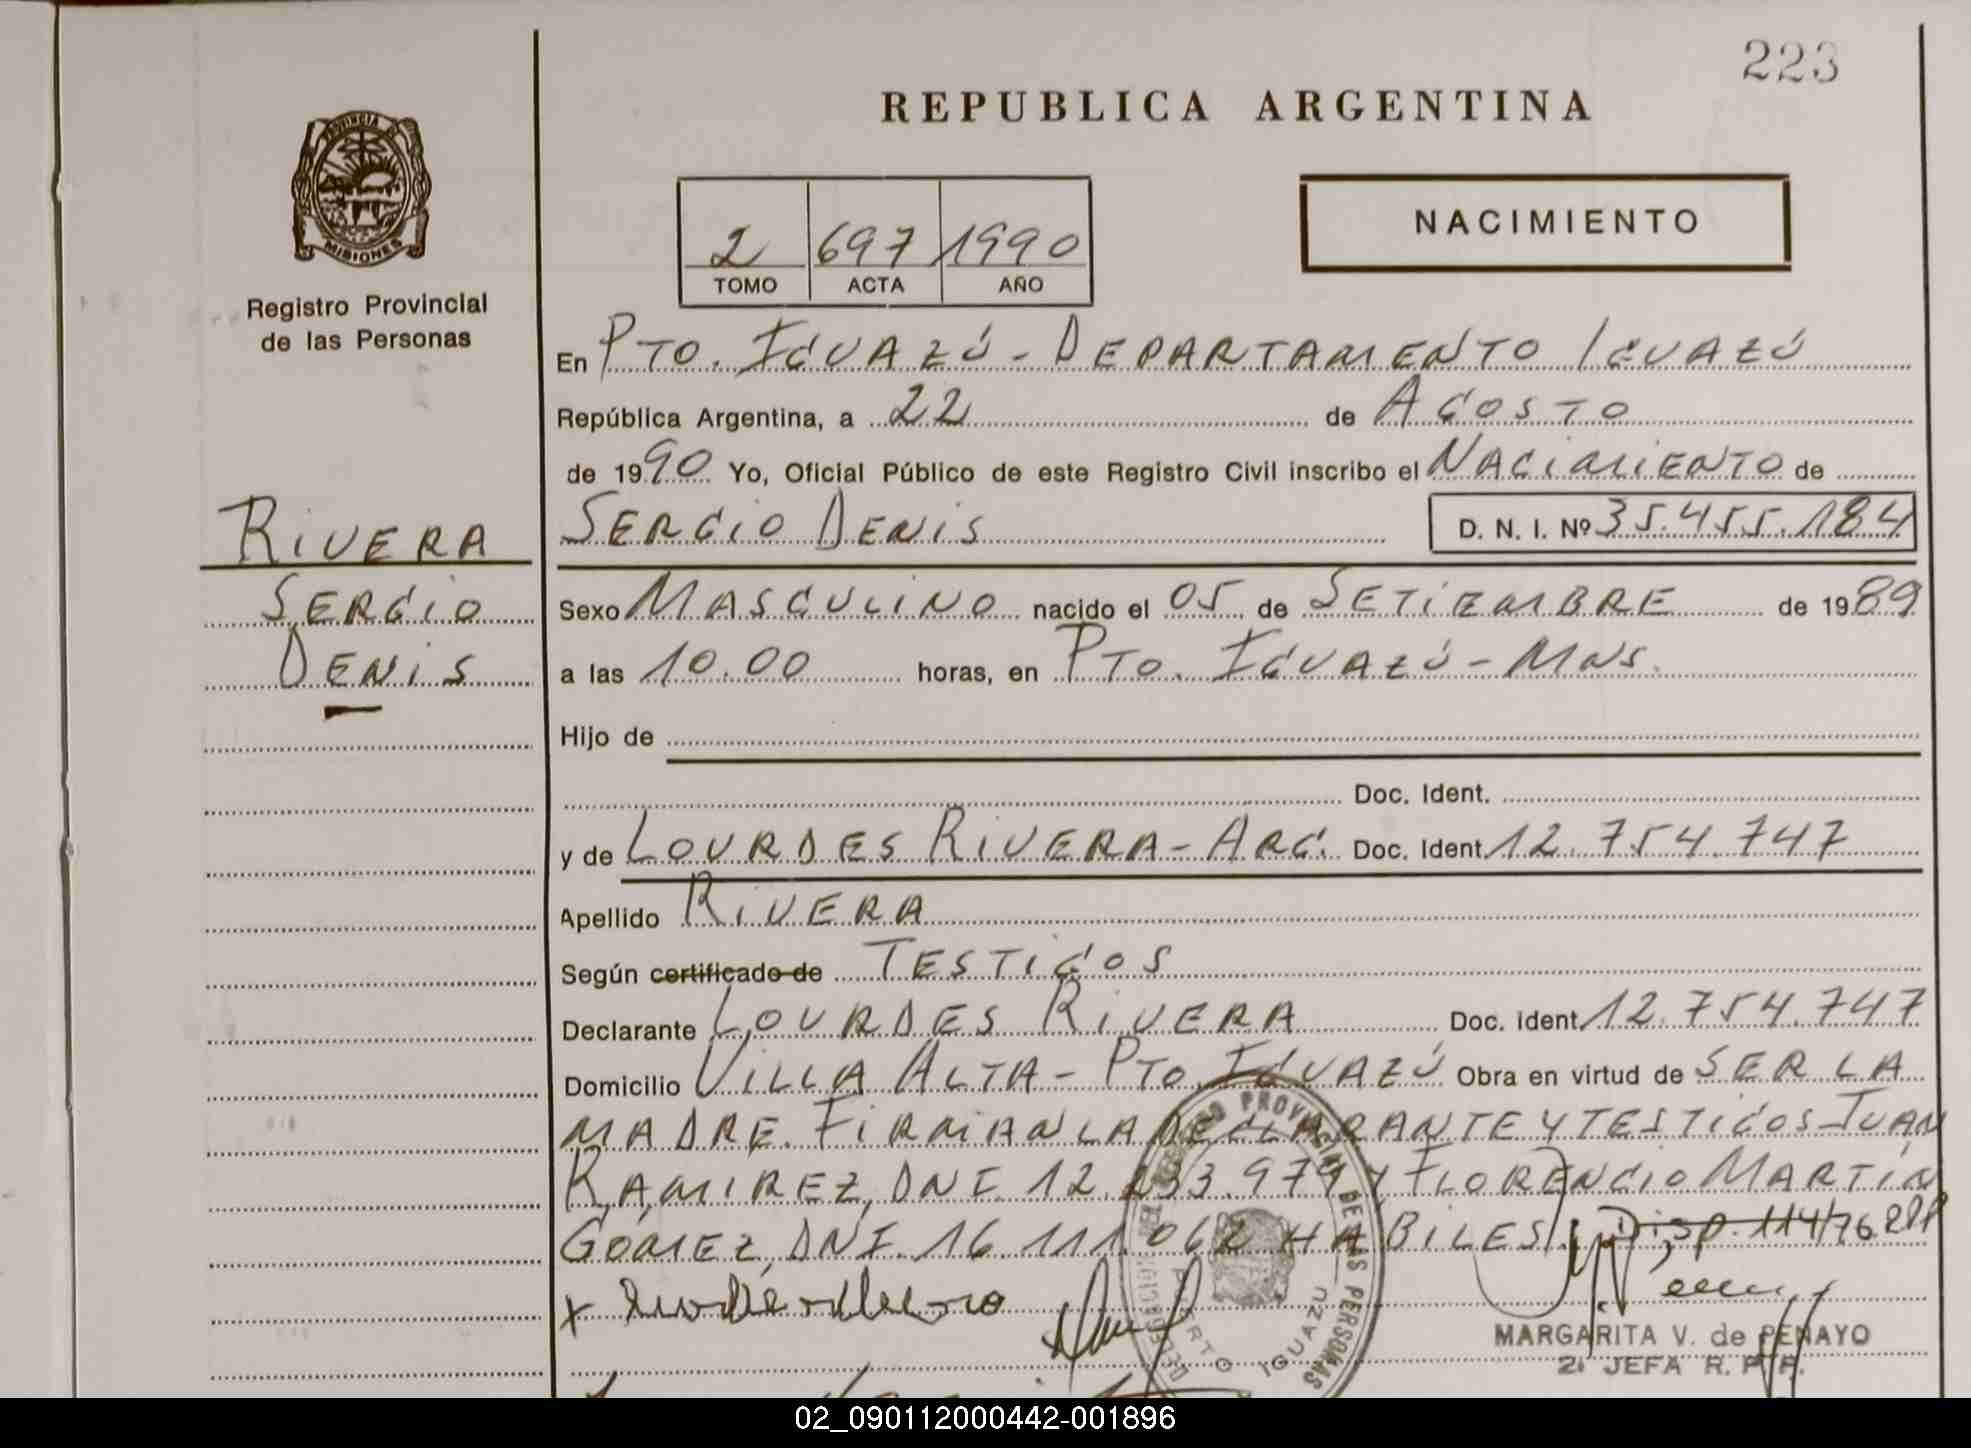 223
REPUBLICA ARGENTINA
PROVINCIA DE
MISIONES
Registro Provincial
de las Personas
2 697 1990
TOMO ACTA AÑO
NACIMIENTO
En PTO. IGUAZÚ - DEPARTAMENTO IGUAZÚ
República Argentina, a 22 de AGOSTO
de 1990 Yo, Oficial Público de este Registro Civil inscribo el NACIMIENTO de
RIVERA
SERGIO DENIS D. N. I. Nº 35.455.184
SERGIO
Sexo MASCULINO nacido el 05 de SETIEMBRE de 1989
DENIS
a las 10.00 horas, en PTO. IGUAZÚ - MNS.
Hijo de
Doc. Ident.
y de LOURDES RIVERA - ARG. Doc. Ident. 12.754.747
Apellido RIVERA
Según certificado de TESTIGOS
Declarante LOURDES RIVERA Doc. ident. 12.754.747
Domicilio VILLA ALTA - PTO. IGUAZÚ Obra en virtud de SER LA
MADRE. FIRMAN LA DECLARANTE Y TESTIGOS - JUAN
RAMIREZ, DNI. 12.233.979 Y FLORENCIO MARTÍN
GÓMEZ, DNI. 16.111.062 HABILES Disp. 114/76 RPP
REGISTRO PROVINCIAL DE LAS PERSONAS
PUERTO IGUAZU
MARGARITA V. de PENAYO
2ª JEFA R. P. P.
02_090112000442-001896